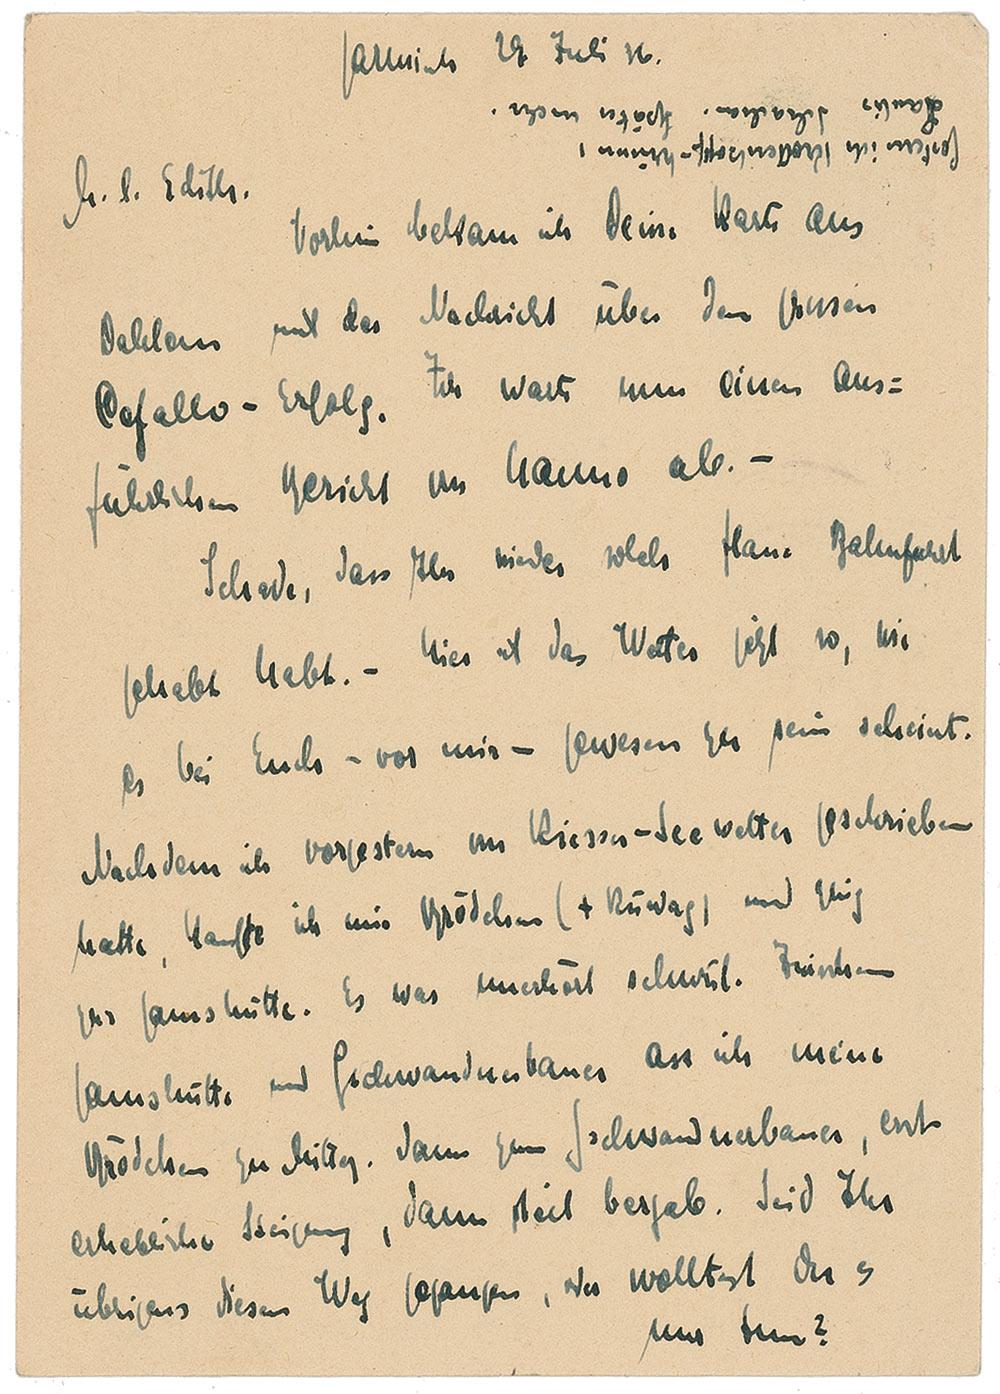 Garmisch 29 Juli 36.
Gestern ich Krottenkopf-Krünn,
Lautersee. Später mehr.
M. l. Edith.
Vorhin bekam ich Deine Karte aus
Dahlem mit der Nachricht über den grossen
Cafallo - Erfolg. Ich warte nun einen aus=
führlichen Bericht von Hanno ab. -
Schade, dass Ihr wieder solch Bahnfahrt
gehabt habt. - Hier ist das Wetter jetzt so, wie
es bei Euch - vor mir - gewesen zu sein scheint.
Nachdem ich vorgestern vom Riesser-See weiter geschrieben
hatte, kaufte ich mir Brödchen (+ Rüwag) und ging
zur Gamshütte. Es war unerhört schwül. Zwischen
Gamshütte und Gschwandnerbauer ass ich meine
Brödchen zu Mittag. Dann zum Gschwandnerbauer, erst
erhebliche Steigung, dann steil bergab. Seid Ihr
übrigens diesen Weg gegangen, oder wolltest Du es
nur tun?